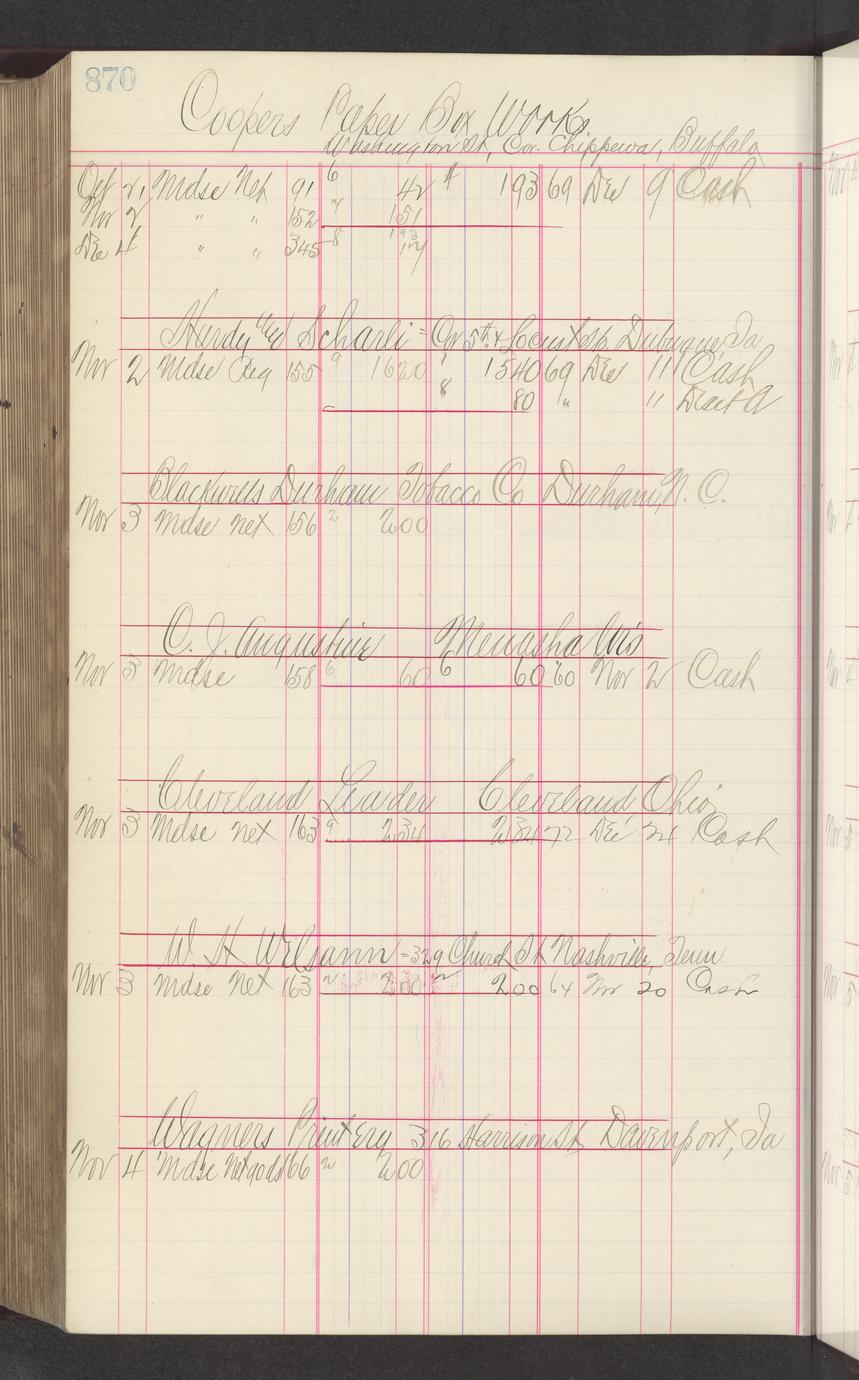 870
Coopers Paper Box Works
Washington St, Cor. Chippewa, Buffalo
Oct 21 Mdse Net 91 6 42 4 193 69 Dec 9 Cash
Nov 2 " " 152 7 151
Dec 4 " " 345 8 193
Hardy and Scharli = Cor 5th & Locust Sts. Dubuque Ia
Nov 2 Mdse Reg 155 9 1620 1540 69 Dec 11 Cash
8 80 " 11 Disct
Blackwells Durham Tobacco Co Durham, N. C.
Nov 3 Mdse Net 156 2 200
C. J. Augustine Menasha Wis
Nov 3 Mdse 158 6 60 6 60 60 Nov 2 Cash
Cleveland Leader Cleveland, Ohio
Nov 3 Mdse Net 163 9 234 234 72 Dec 24 Cash
W. H. - 329 Church St Nashville, Tenn.
Nov 3 Mdse Net 163 2 200 2 200 64 Nov 20 Cash
Wagners Printery 316 Harrison St Davenport, Ia
Nov 4 Mdse Net gods 166 2 200